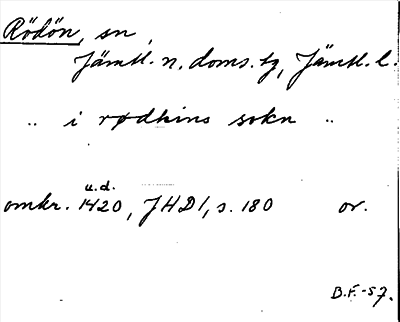 Rödön, sn
Jämtl. n. doms. tg, Jämtl. l.
" i rødhins sokn "
u.d.
omkr. 1420, JHD 1, s. 180 or.
B.F.-57.